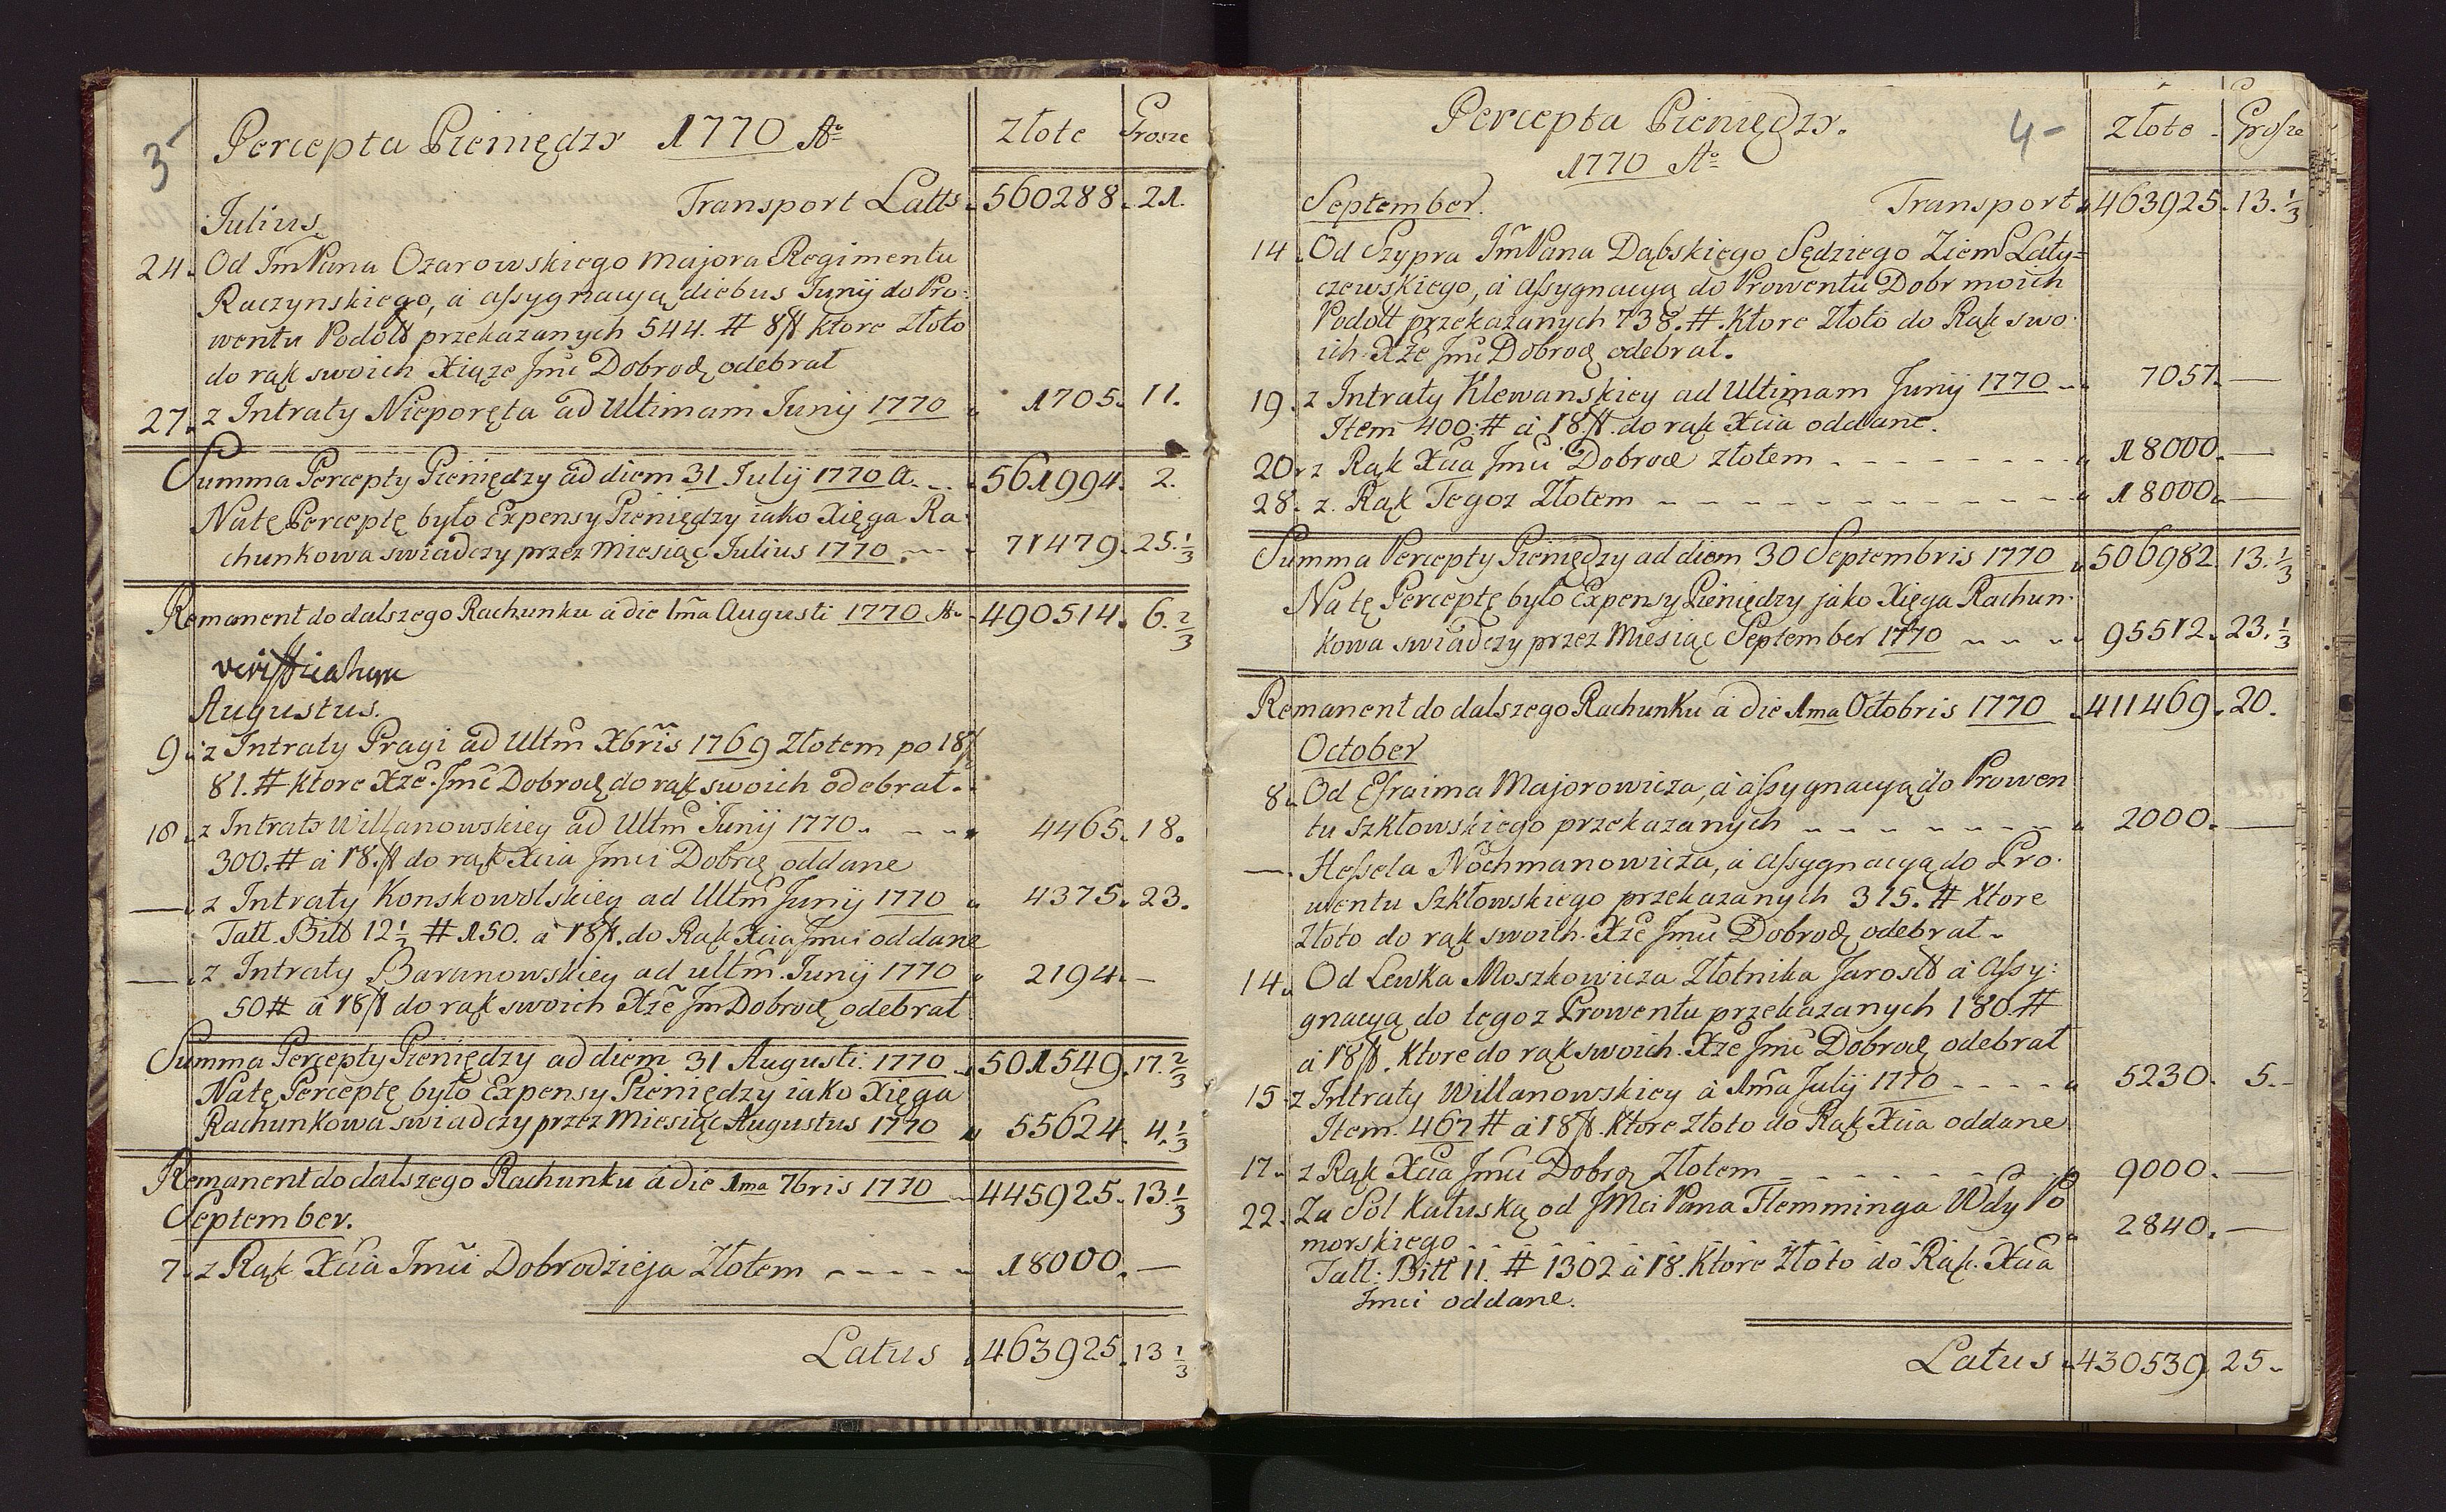 3-
Percepta Pieniędzy 1770 Aº
Złote Grosze
Transport Latts 560288. 21.
Julius
24. Od JmPana Ozarowskiego Majora Regimentu
Raczynskiego, à assygnacyą diebus Junij do Pro:
wentu Podoll przekazanych 544. # 8 ktore Złoto
do rąk swoich Xiąże Jmć Dobrodz odebrał
27. z Intraty Nieporęta ad Ultimam Junij 1770 1705. 11.
Summa Percepty Pieniędzy ad diem 31 Julij 1770 A. 561994. 2.
Na tę Perceptę było Expensy Pieniędzy iako Xięga Ra:
chunkowa swiadczy przez Miesiąc Julius 1770. 71479. 25. 1/3
Remanent do dalszego Rachunku à die 1ma Augusti 1770 Aº 490514. 6. 2/3
verificatum
Augustus.
9. z Intraty Pragi ad Ultm Xbris 1769 Złotem po 18
81. # ktore Xże Jmć Dobrodz do rąk swoich odebrał.
18. z Intraty Willanowskiey ad Ultm Junij 1770. 4465. 18.
300. # à 18. do rąk Xcia Jmci Dobrdz oddane
— z Intraty Konskowolskiey ad Ultm Junij 1770 4375. 23.
Tall. Bitt 12 1/2 # 150. à 18. do Rąk Xcia Jmci oddane
— z Intraty Baranowskiey ad ultm. Junij 1770 2194. —
50 # à 18 do rąk swoich Xże Jm Dobrodz odebrał
Summa Percepty Pieniędzy ad diem 31 Augusti. 1770 501549. 17. 2/3
Na tę Perceptę było Expensy Pieniędzy iako Xięga
Rachunkowa swiadczy przez Miesiąc Augustus 1770 55624. 4. 1/3
Remanent do dalszego Rachunku à die 1ma 7bris 1770 445925. 13. 1/3
September.
7. z Rąk Xcia Jmci Dobrodzieja Złotem 18000. —
Latus 463925. 13 1/3
Percepta Pieniędzy.
4-
Złote Grosze
1770 Aº
September. Transport 463925. 13. 1/3
14. Od Szypra JmPana Dąbskiego Sędziego Ziem Laty=
czewskiego, à assygnacyą do Prowentu Dobr moich
Podoll przekazanych 738. #. Ktore Złoto do Rąk swo:
ich Xże Jmć Dobrodz odebrał.
19. z Intraty Klewanskiey ad Ultimam Junij 1770 7057. —
Item 400. # à 18. do rąk Xcia oddane.
20. z Rąk Xcia Jmci Dobrodz złotem 18000. —
28. z. Rąk Tegoz Złotem 18000. —
Summa Percepty Pieniędzy ad diem 30 Septembris 1770 506982. 13. 1/3
Na tę Perceptę było Expensy Pieniędzy jako Xięga Rachun:
kowa swiadczy przez Miesiąc September 1770 95512. 23. 1/3
Remanent do dalszego Rachunku à die 1ma Octobris 1770 411469. 20.
October
8. Od Efraima Majorowicza, à assygnacyą do Prowen
tu Szkłowskiego przekazanych 2000. —
— Hessela Nochmanowicza, à assygnacyą do Pro:
wentu Szkłowskiego przekazanych 315. # Ktore
Złoto do rąk swoich. Xże Jmci Dobrodz odebrał.
14. Od Lewka Moszkowicza Złotnika Jarosll à Assy:
gnacyą do tegoz Prowentu przekazanych 180 #
à 18. Ktore do rąk swoich. Xże Jmć Dobrodz odebrał
15 z Intraty Willanowskiey à 1ma Julij 1770 5230. 5.-
Item. 467 # à 18. Ktore złoto do Rąk Xcia oddane
17. z Rąk Xcia Jmci Dobrdz Złotem 9000. —
22. Za Sol Kałuską od JMci Pana Flemminga Wdy Po
morskiego 2840. —
Tall: Bitt 11. # 1302 à 18. Ktore Złoto do Rąk. Xcia
Jmci oddane.
Latus 430539. 25.